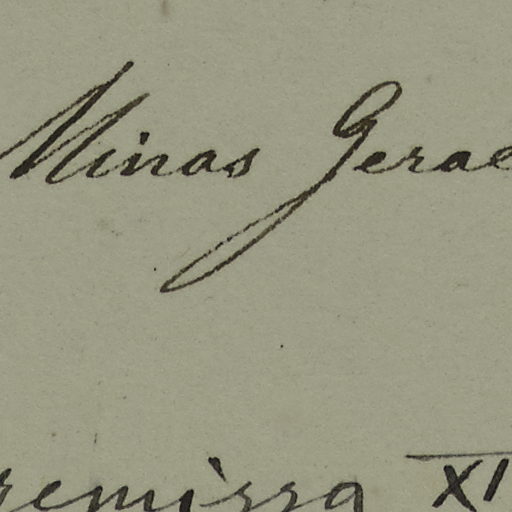 Minas Gerae
remissa XI